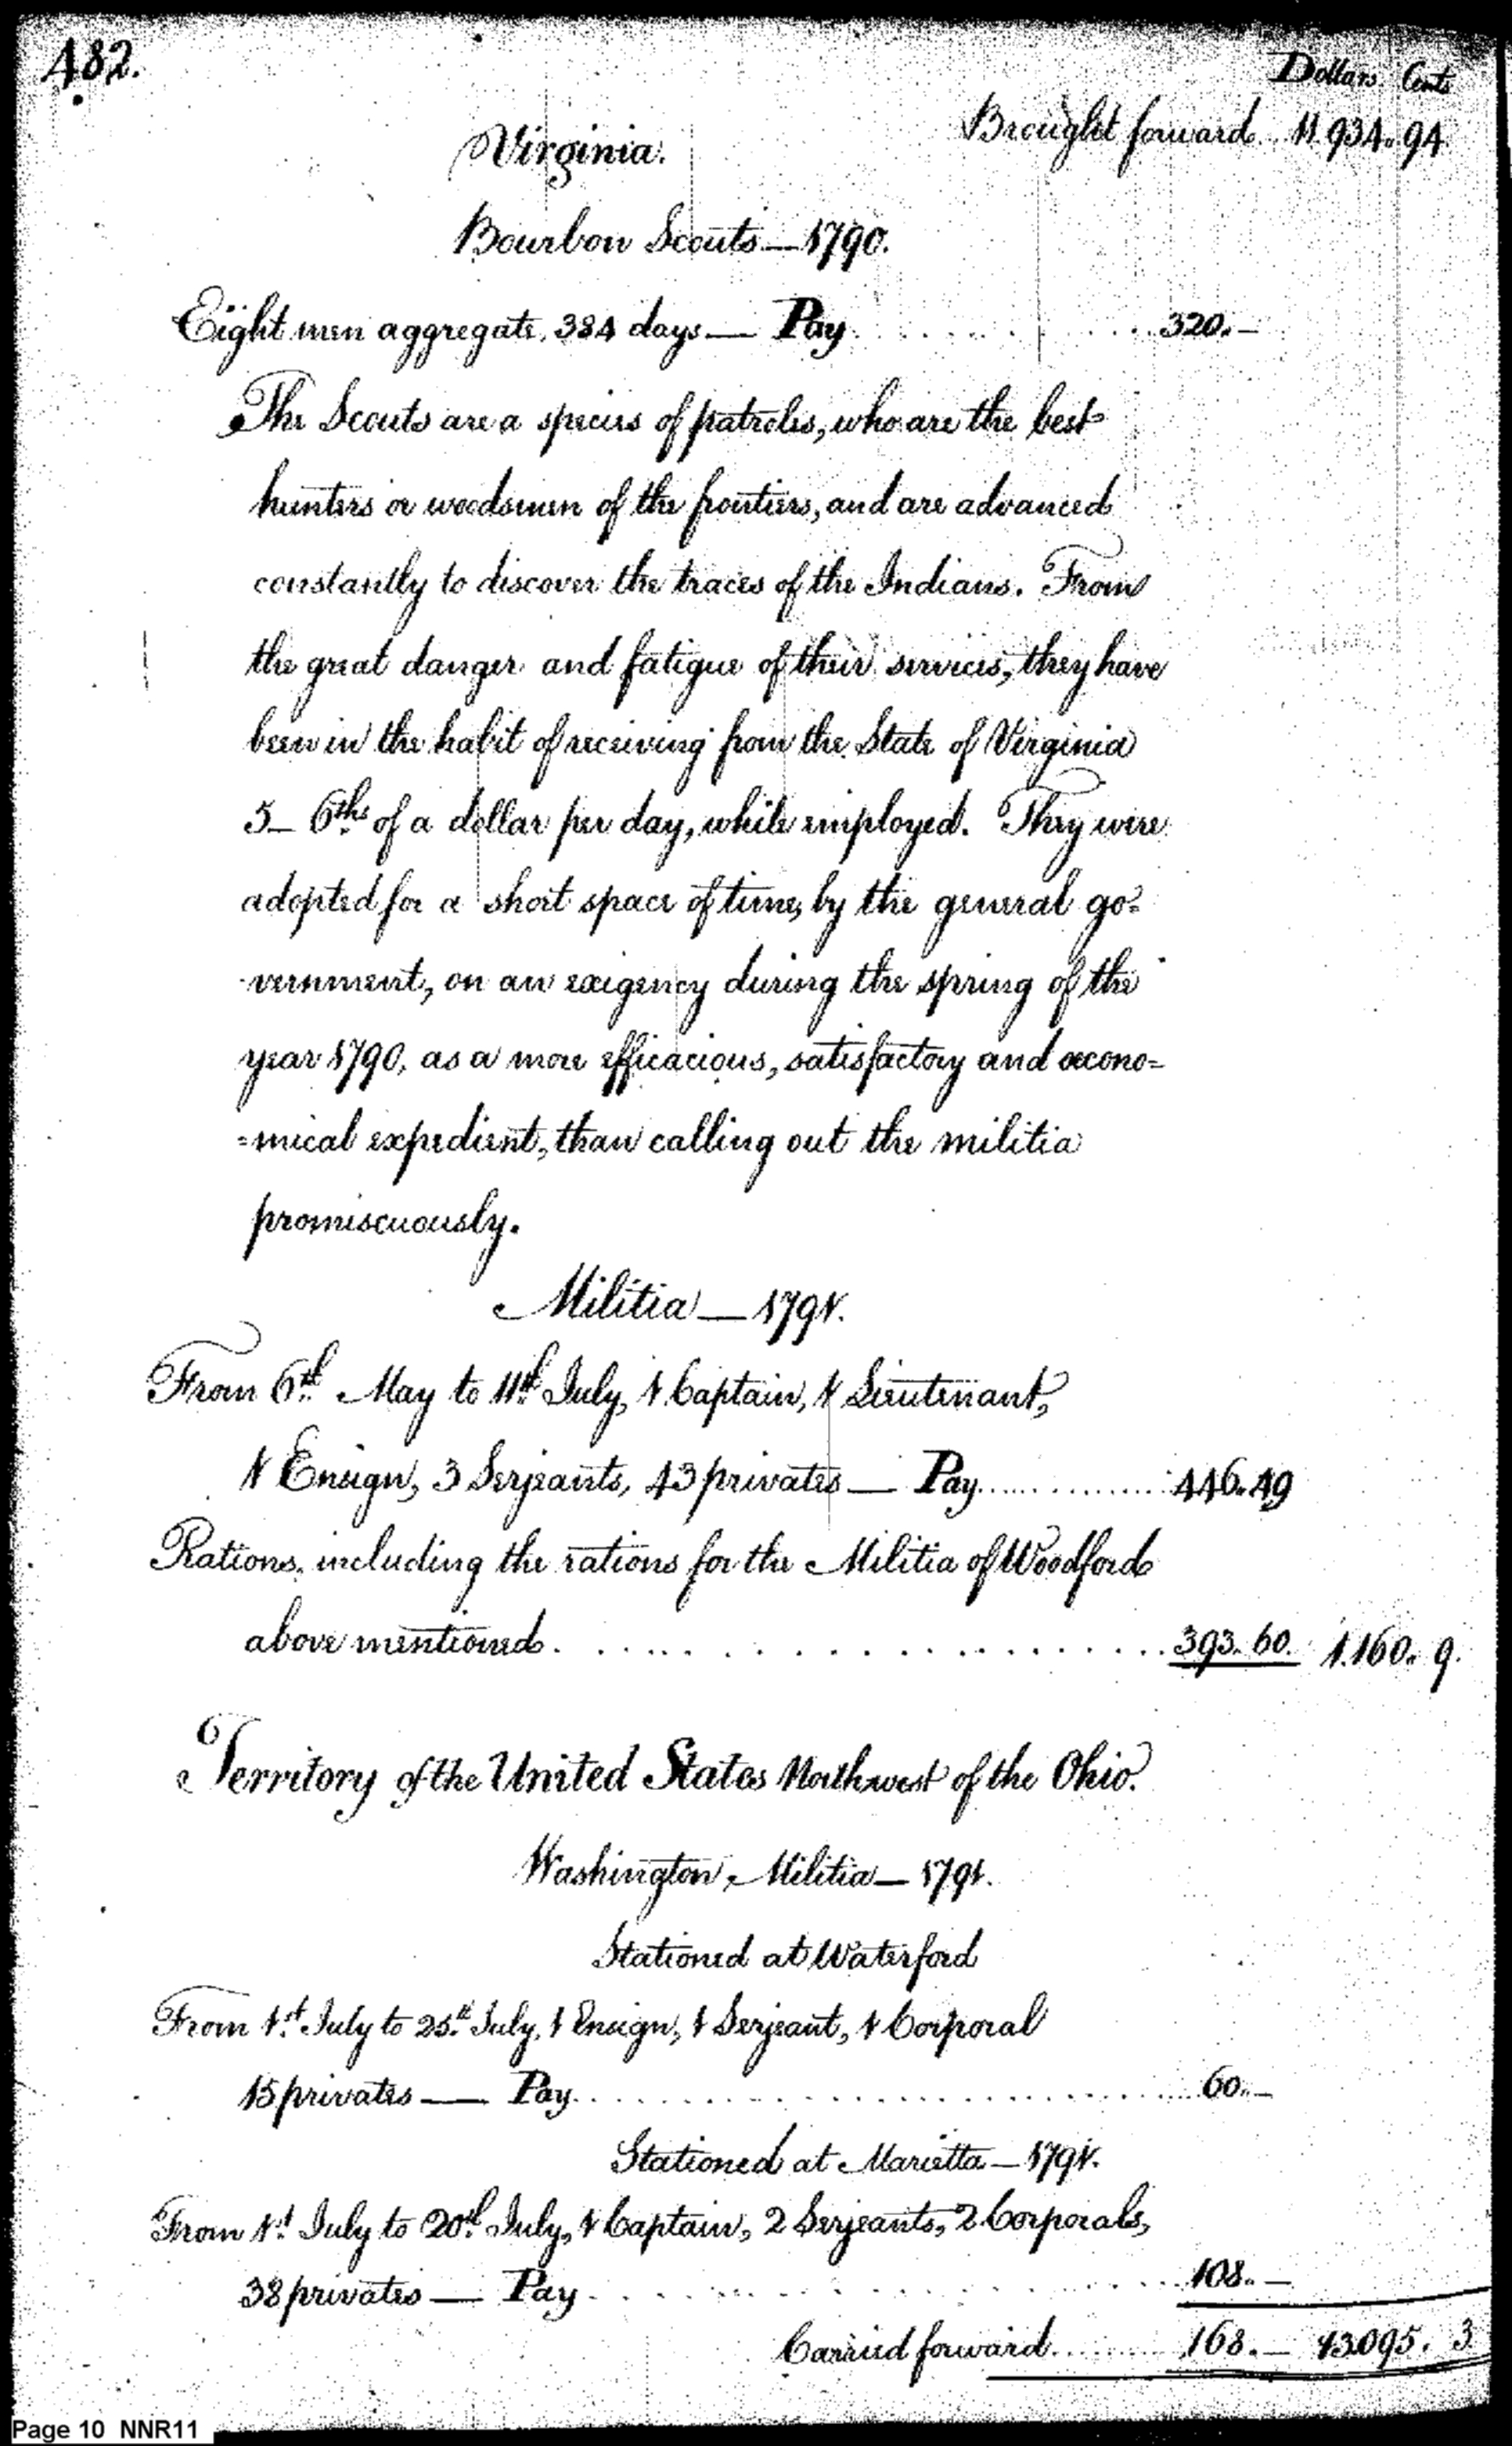 182.
Dollars Cents
Brought forward.. 11.934.. 94
Virginia.
Bourbon Scouts — 1790.
Eight men aggregate, 384 days — Pay . . . . . . . . . . 320..—
The Scouts are a species of patroles, who are the best
hunters or woodsmen of the frontiers, and are advanced
constantly to discover the traces of the Indians. From
the great danger and fatigue of their services, they have
been in the habit of receiving from the State of Virginia
5–6ths of a dollar per day, while employed. They were
adopted for a short space of time, by the general go=
vernment, on an exigency during the spring of the
year 1790, as a more efficacious, satisfactory and œcono=
=mical expedient, than calling out the militia
promiscuously.
Militia — 1791.
From 6th May to 11th July, 1 Captain, 1 Lieutenant,
1 Ensign, 3 Serjeants, 43 privates — Pay . . . . . . . . 446.. 49
Rations, including the rations for the Militia of Woodford
above mentioned . . . . . . . . . . . . . . . . 393.. 60. 1.160.. 9.
Territory of the United States Northwest of the Ohio.
Washington, Militia — 1791.
Stationed at Waterford
From 1st July to 25th July, 1 Ensign, 1 Serjeant, 1 Corporal
15 privates — Pay . . . . . . . . . . . . . . . . 60..—
Stationed at Marietta — 1791.
From 1st July to 20th July, 1 Captain, 2 Serjeants, 2 Corporals,
38 privates — Pay . . . . . . . . . . . . . . . . 108..—
Carried forward . . . . . . . 168.. — 13.095.. 3
Page 10 NNR11